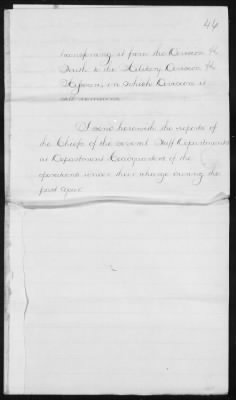 46
transferring it from the Division of the
South to the Military Division of the
Missouri in which Division it
still remains.
I send herewith the reports of
the Chiefs of the several Staff Departments
at Department Headquarters of the
operations under their charge during the
past year.